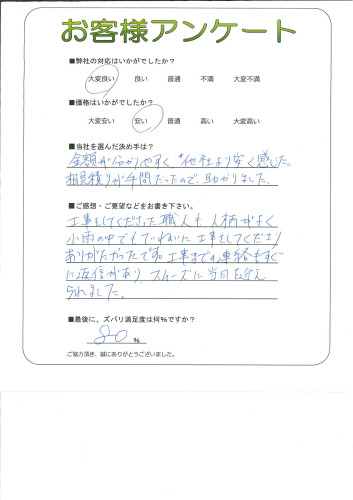 お客様アンケート
■弊社の対応はいかがでしたか？
大変良い 良い 普通 不満 大変不満
■価格はいかがでしたか？
大変安い 安い 普通 高い 大変高い
■当社を選んだ決め手は？
金額が分かりやすく 他社より安く感じた。
相見積りが手間だったので、助かりました。
■ご感想・ご要望などをお書き下さい。
工事をしてくださった職人も人柄がよく
小雨の中でもていねいに工事をしてくださり
ありがたかったです。工事までの連絡もすぐ
に返信があり スムーズに当日を迎え
られました。
■最後に、ズバリ満足度は何%ですか？
80 %
ご協力頂き、誠にありがとうございました。